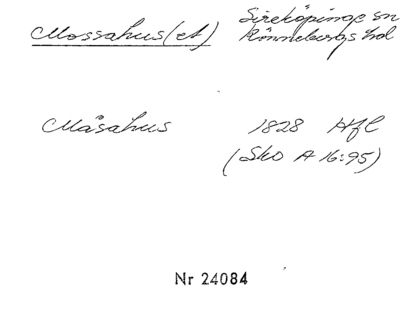 Mossahus(et) Sireköpinge sn
Rönnebergs hd
Måsahus 1828 Hfl
(Sko A 16:95)
Nr 24084